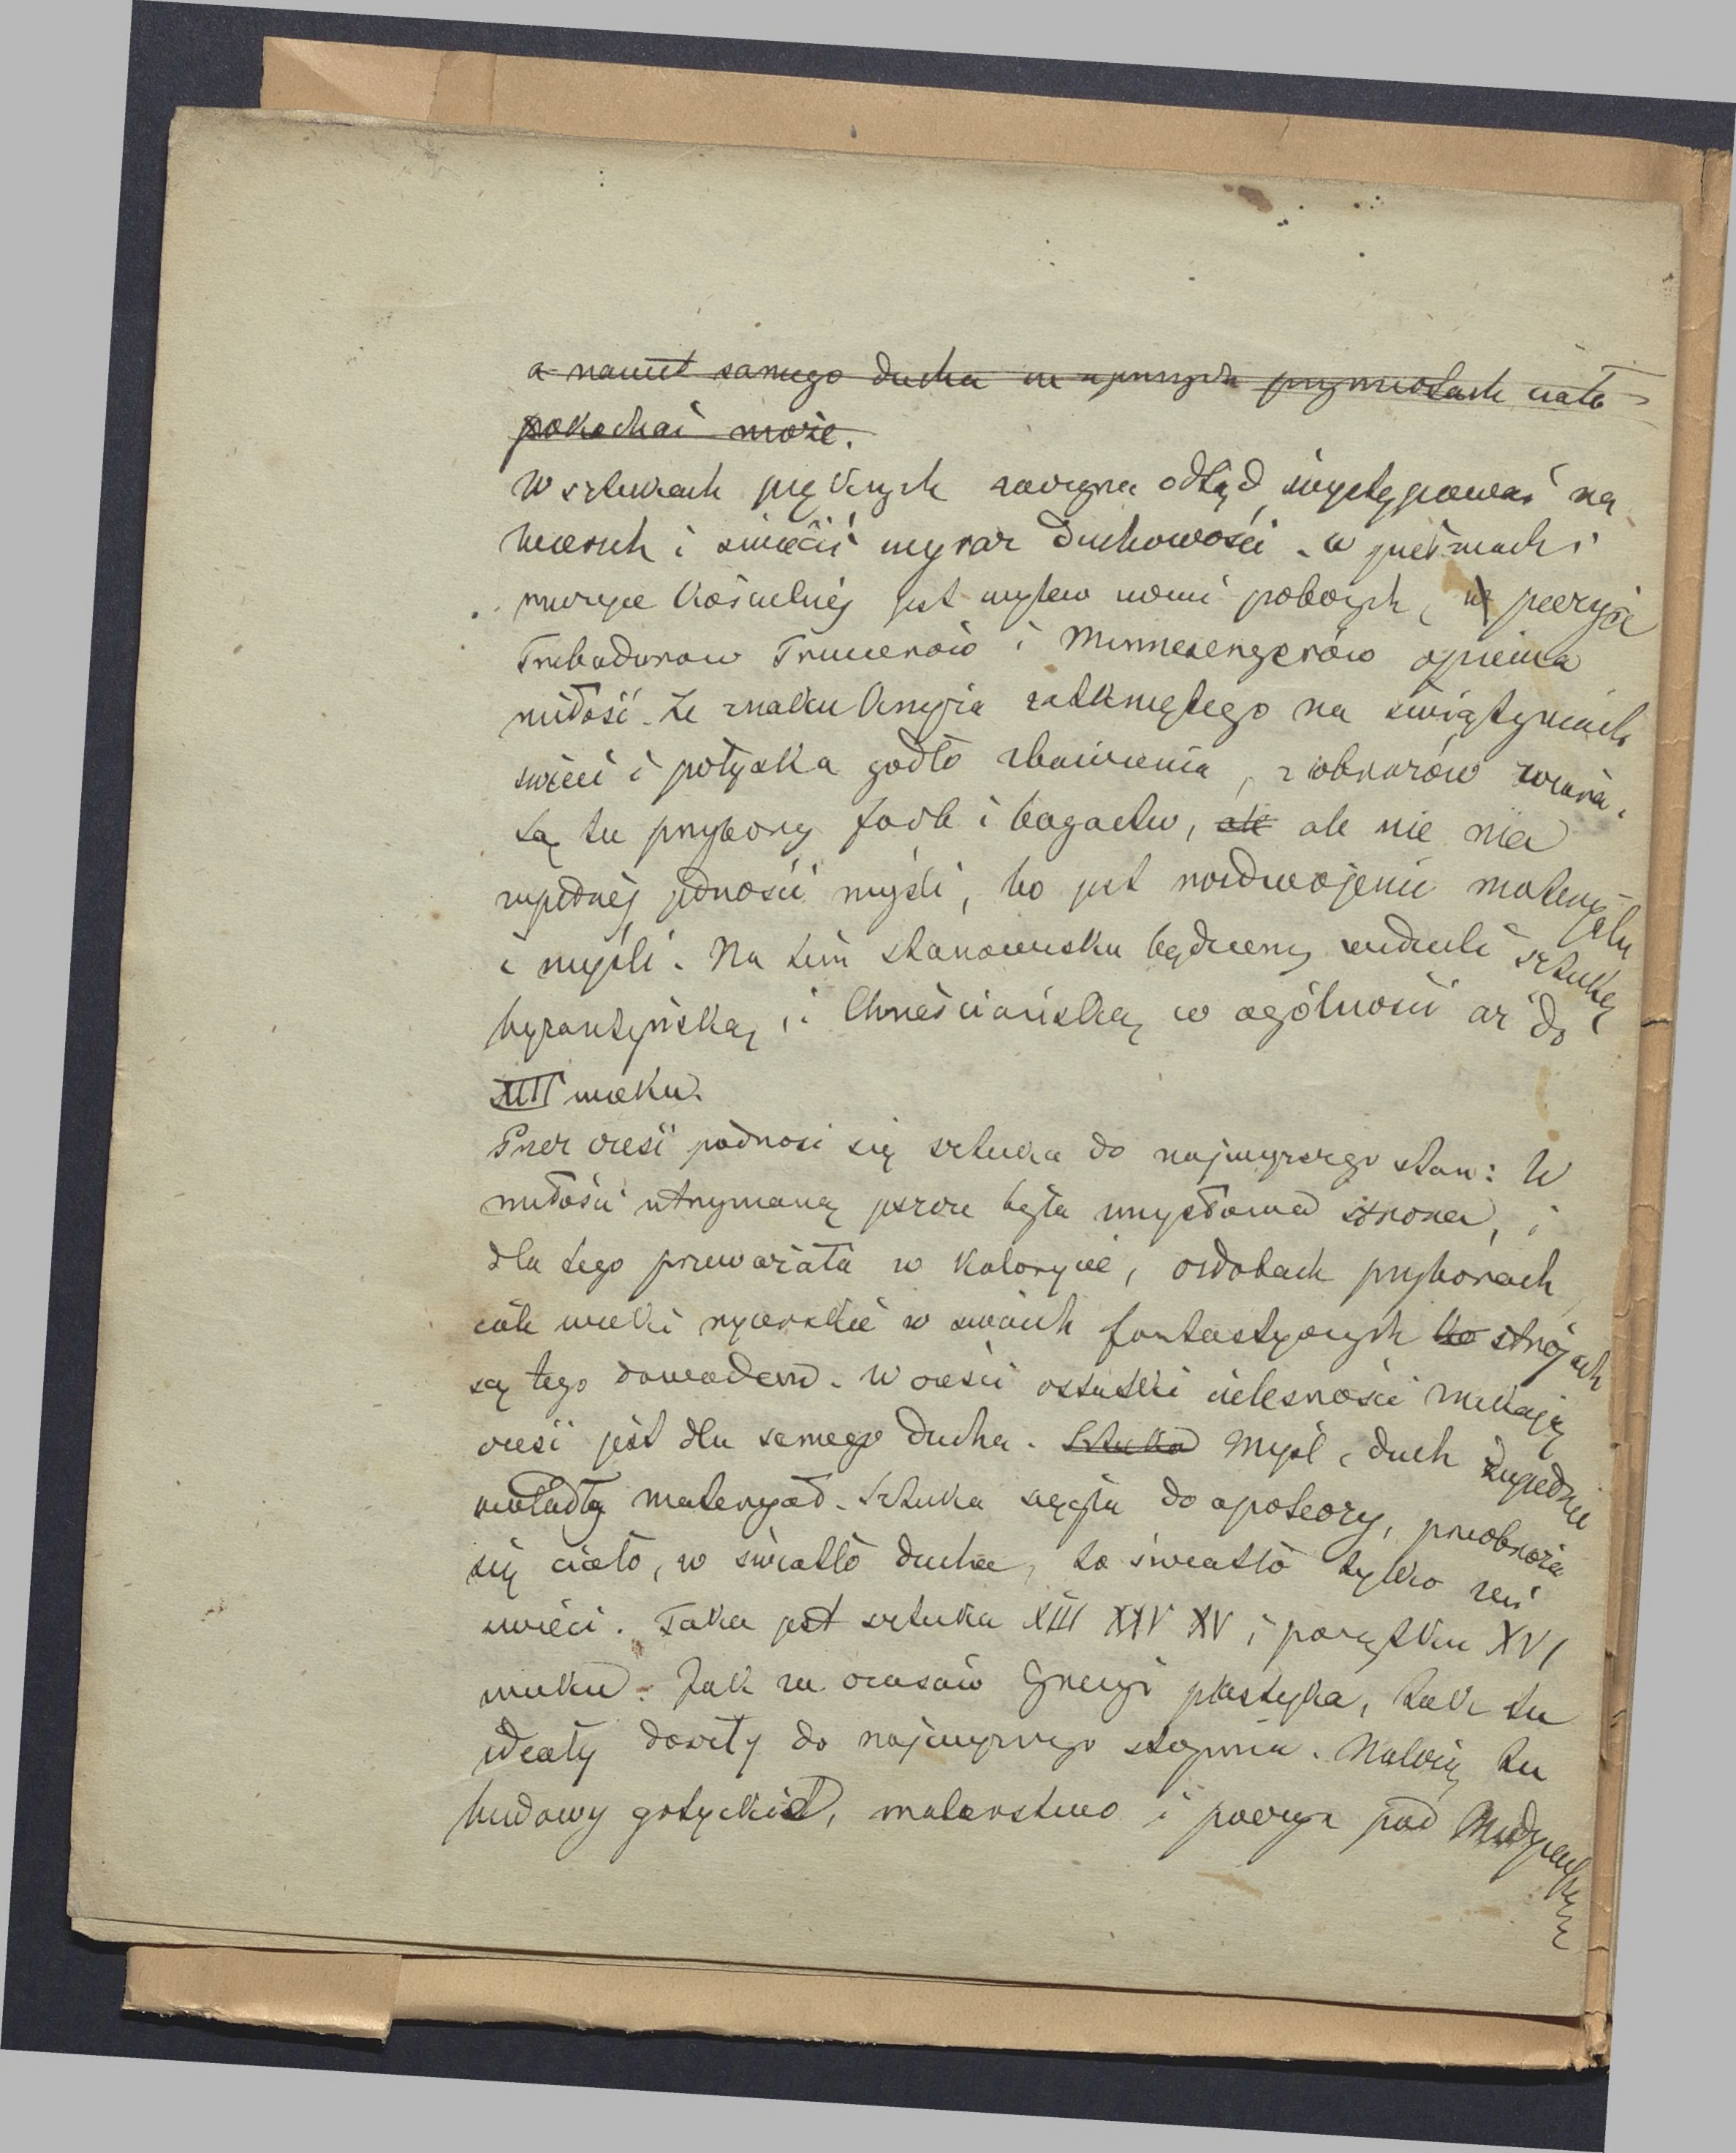 a nawet samego ducha w przymiotach ciała
pokochać może.
W sztukach pięknych zaczyna odtąd występować na
wierzch i świecić wyraz duchowości. w pieśniach i
muzyce kościelnéj jest wylew uczuć pobożnych, w poezyi
Trubadurow Truwerów i Minnesengerów opiewa
miłość. Ze znaku krzyża zatkniętego na świątyniach
świeci i połyska godło zbawienia, z obrazów wiara.
Są tu przybory farb i bogactw, ale ale nie ma
zupełnéj jedności myśli, bo jest rozdwojenie materyjału
i myśli. Na tem stanowisku będziemy widzieli sztukę
byzantyńską, i Chrześciańską w ogólności aż do
XIII wieku.
Przez cześć podnosi się sztuka do najwyższego stan: W
miłości utrzymaną jeszcze była zmysłowa strona, i
dla tego przeważała w kolorycie, ozdobach przyborach,
całe wieki rycerskie w swoich fantastycznych ko strojach
są tego dowodem. W cześci ostatki cielesności znikają
cześć jest dla samego ducha. Sztuka Myśl, duch zupełnie
owładły materyał. Sztuka sięga do apoteozy, przeobraża
się ciało, w światło ducha, to światło tylko zeń
świeci. Taka jest sztuka XIII XIV XV i początku XVI
wieku. Jak za czasów Grecyi plastyka, tak tu
ideały doszły do najwyższego stopnia. Należą tu
budowy gotyckie, malarstwo i poezya pod